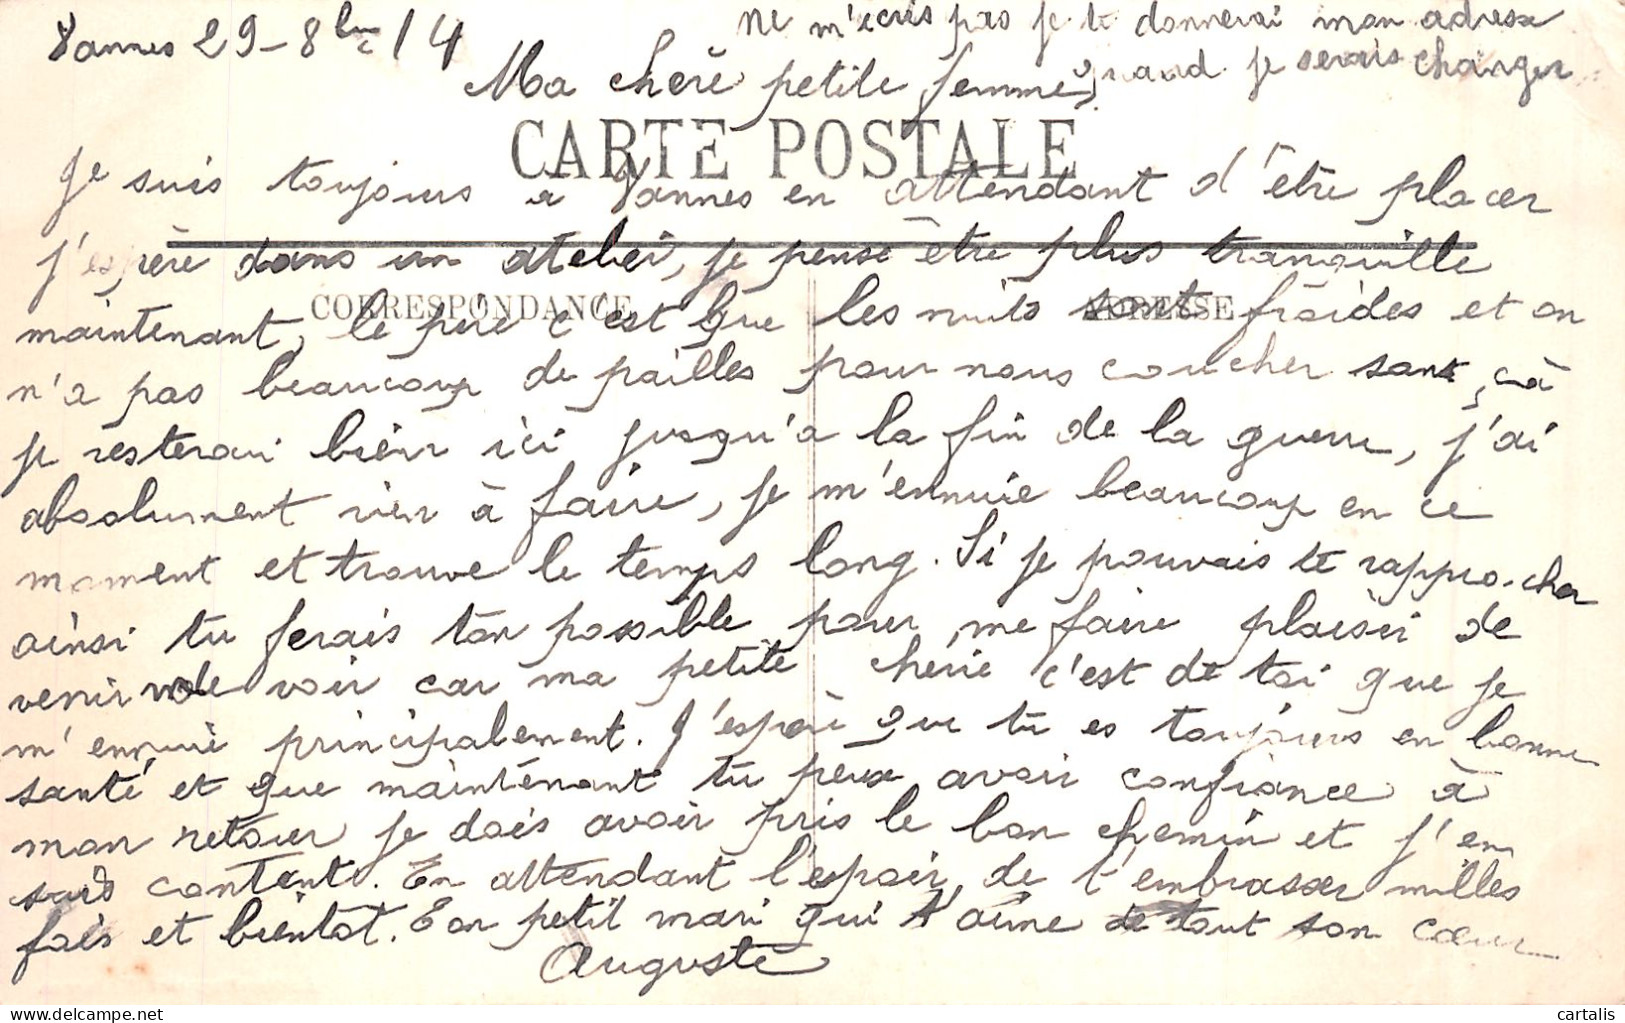 Vannes 29-8bre/4
ne m'écris pas je te donnerai mon adresse
quand je serais changer
Ma chère petite femme,
CARTE POSTALE
Je suis toujours à Vannes en attendant d'être placer
j'espère dans un atelier, je pense être plus tranquille
CORRESPONDANCE
ADRESSE
maintenant, le pire c'est que les nuits sont froides et on
n'a pas beaucoup de pailles pour nous coucher sans çà
je resterai bien ici jusqu'a la fin de la guerre, j'ai
absolument rien à faire, je m'ennuie beaucoup en ce
moment et trouve le temps long. Si je pouvais te rapprocher
ainsi tu ferais ton possible pour me faire plaisir de
venir me voir car ma petite chérie c'est de toi que je
m'ennuie principalement. J'espère que tu es toujours en bonne
santé et que maintenant tu peux avoir confiance à
mon retour je dois avoir pris le bon chemin et j'en
suis content. En attendant l'espoir de t'embrasser milles
fois et bientot. Ton petit mari qui t'aime de tout son cœur
Auguste
cartalis
delcampe.net